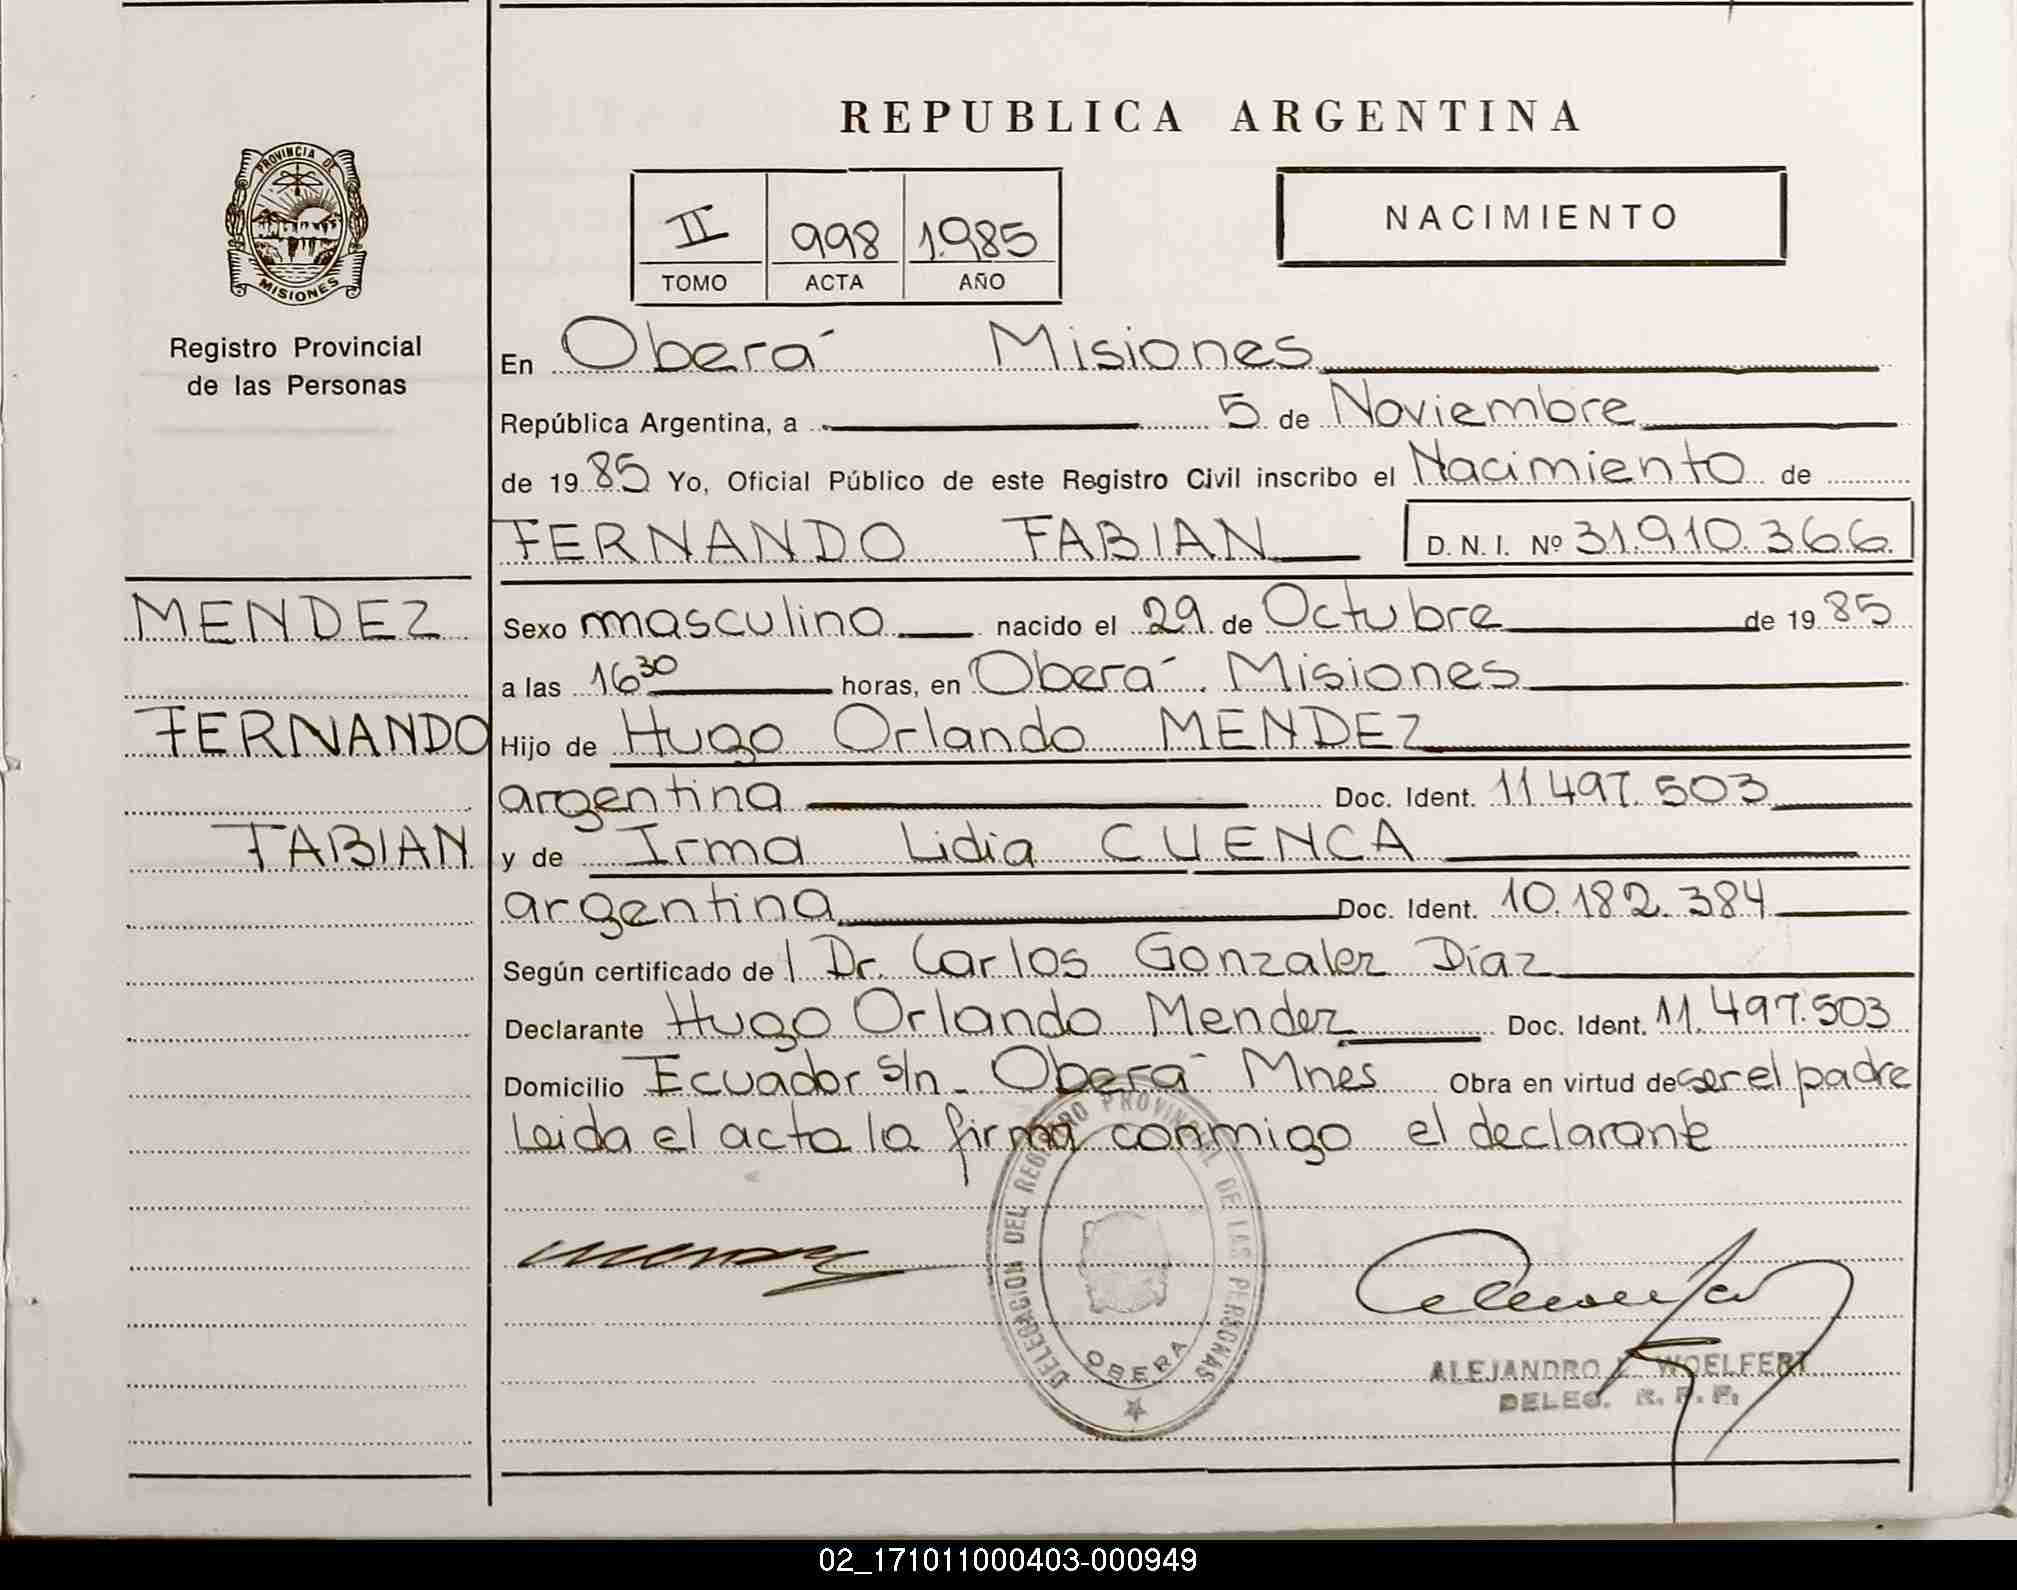 REPUBLICA ARGENTINA
PROVINCIA DE
MISIONES
Registro Provincial
de las Personas
II 998 1.985
TOMO ACTA AÑO
NACIMIENTO
En Oberá Misiones
República Argentina, a 5 de Noviembre
de 1985 Yo, Oficial Público de este Registro Civil inscribo el Nacimiento de
FERNANDO FABIAN D. N. I. Nº 31.910.366
MENDEZ
FERNANDO
FABIAN
Sexo masculino nacido el 29 de Octubre de 1985
a las 16 30 horas, en Oberá Misiones
Hijo de Hugo Orlando MENDEZ
argentina Doc. Ident. 11.497.503
y de Irma Lidia CUENCA
argentina Doc. Ident. 10.182.384
Según certificado de l Dr. Carlos Gonzalez Díaz
Declarante Hugo Orlando Mendez Doc. Ident. 11.497.503
Domicilio Ecuador s/n - Oberá Mnes Obra en virtud de ser el padre
Leida el acta la firma conmigo el declarante
DELEGACION DEL REGISTRO PROVINCIAL DE LAS PERSONAS
OBERA
ALEJANDRO WOELFERT
DELEG. R. P. P.
02_171011000403-000949